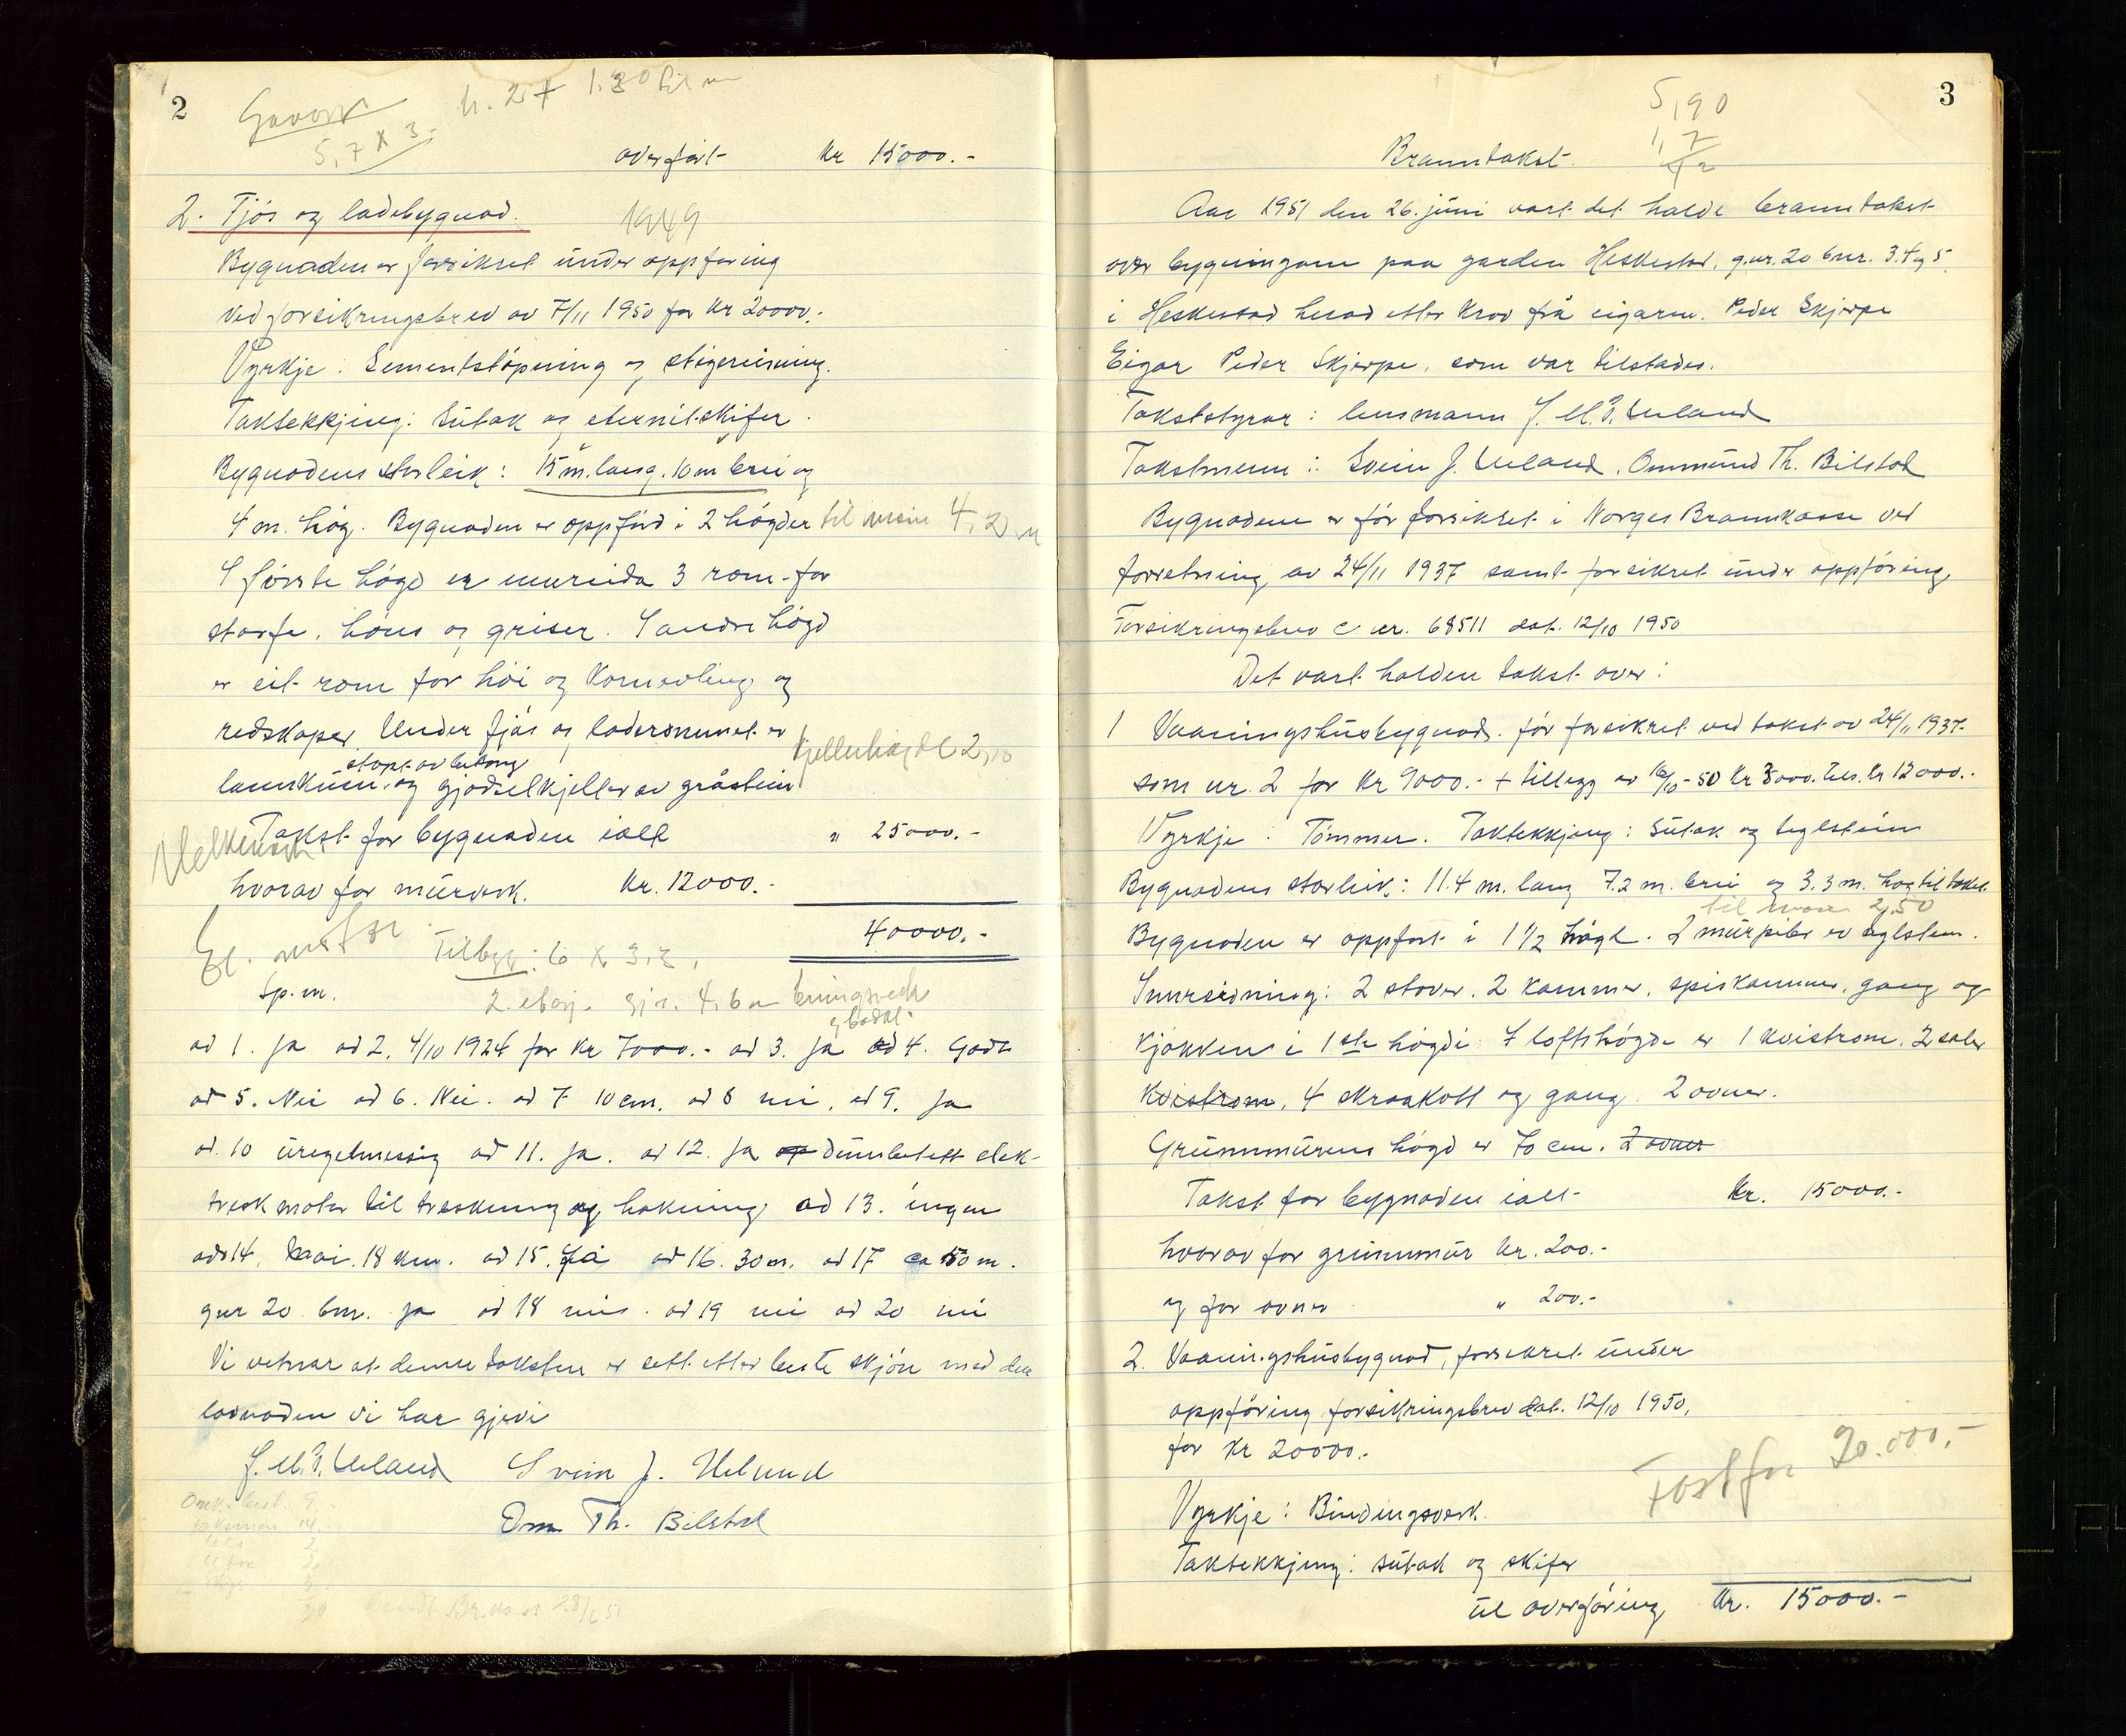 2
5,7 X 3
overført kr 15000.-
2. Fjös og ladebygnad. 1949
Bygnaden er forsikret under oppföring
ved forsikringsbrev av 7/11 1950 for kr 20000.-
Vyrkje: Sementstöpning og steigereisning.
Taktekkjing: Sutak og eternitskifer.
Bygnadens storleik: 15 m. lang. 10 m brei og
4 m. hög. Bygnaden er oppförd i 2 högder til møne 4,2 m
I förste högd er innreida 3 rom for
storfe, höns og griser. I andre högd
er eit rom for höi og kornavling og
redskaper. Under fjös og laderommet er kjellerhøgde 2,10
støpt av betong
landkum og gjödselkjeller av gråstein
Takst for bygnaden ialt " 25000.-
hvorav for murverk. kr. 12000.-
40000.-
El. motor Tilbygg: 6 X 3,2,
Sp.m. 2. etasj.
ad 1. Ja ad 2. 4/10 1924 for kr 7000.- ad 3. ja ad 4. Godt
ad 5. Nei ad 6. Nei. ad 7 10 cm. ad 8 nei. ad 9. Ja
ad. 10 uregelmessig ad 11. Ja. ad 12. Ja elek-
trisk motor til treskning og hakning ad 13. ingen
ad 14. 18 km. ad 15. Ja ad 16. 30 m. ad 17 ca 50 m.
gnr 20 bnr. ad 18 nei. ad 19 nei ad 20 nei
Vi vitnar at denne taksten er sett etter beste skjön med den
lovnaden vi har gjevi
J. M. T. Ueland Svein J. Ueland
Om Th. Bilstad
3
5,90
1,7
Branntakst.
Aar 1951 den 26. juni vart det halde branntakst
over bygningane paa garden Heskestad, g.nr. 20 bnr. 3.4 og 5.
i Heskestad herad etter krav frå eigaren. Peder Skjerpe
Eigar Peder Skjerpe, som var tilstades.
Takststyrar: lensmann J. M. T. Ueland
Takstmenn: Svein J. Ueland, Ommund Th. Bilstad
Bygnadene er för forsikret i Norges Brannkasse ved
forretning av 24/11 1937 samt forsikret under oppföring,
Forsikringsbrev C nr. 68511 dat. 12/10 1950
Det vart halden takst over:
1 Vaaningshusbygnad. för forsikret ved takst av 24/11 1937
som nr. 2 for kr 9000.- + tillegg av 12/10-50 kr 3000. Tils. kr 12000.-
Vyrkje: Tömmer. Taktekkjing: Sutak og teglstein
Bygnadens storleik: 11.4 m. lang 7.2 m. brei og 3.3 m. hög til taket.
til møne 2,50
Bygnaden er oppfört i 1 1/2 högd. 2 murpiber av teglstein.
Innreidning: 2 stover. 2 kammer, spiskammer, gang og
kjökken i 1ste högdi I loftshögde er 1 kvistrom. 2 saler
kvistrom, 4 skraakott og gang. 2 ovner.
Grunnmurens högd er 70 cm. 2 ovner
Takst for bygnaden ialt kr. 15000.-
hvorav for grunnmur kr. 200.-
og for ovner " 200.-
2. Vaaningshusbygnad, forsikret under
oppföring forsikringsbrev dat. 12/10 1950,
for kr 20000.-
Tost for 20.000,-
Vyrkje: Bindingsverk.
Taktekkjing: sutak og skifer
til overföring kr. 15000.-